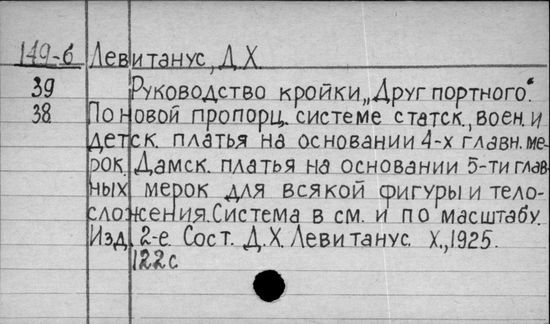 149-б Левитанус, Д.Х.
39 Руководство кройки „Друг портного“.
38 По новой пропорц. системе статск., воен. и
детск. платья на основании 4-х главн. ме-
рок. Дамск. платья на основании 5-ти глав-
ных мерок для всякой фигуры и тело-
сложения. Система в см. и по масштабу.
Изд. 2-е. Сост. Д.Х. Левитанус. Х., 1925.
122 с